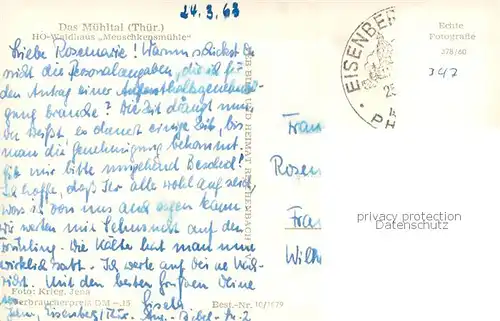 24.3.63
Das Mühltal (Thür.)
HO-Waldhaus „Meuschkensmühle"
Echte
Fotografie
378/60
342
EISENBE
Liebe Rosemarie! Warum schickst Du
nicht die Personalangaben, die ich für
den Antrag einer Aufenthaltsgenehmi-
gung brauche? Die Zeit drängt nun
Du weißt es dauert einige Zeit, bis
man die Genehmigung bekommt.
Gib mir bitte umgehend Bescheid!
Ich hoffe, daß Ihr alle wohl auf seid,
was ich von uns auch sagen kann
Wir warten mit Sehnsucht auf den
Frühling. Die Kälte hat man nun
wirklich satt. Ich warte auf Deine Nach-
richt. Mit den besten Grüßen Deine
Gisela
Foto: Krieg, Jena
Verbraucherpreis DM -,15
Best.-Nr. 10/1679
Eisenberg/Thür. Aug.-Bebel-Str. 2
BILD UND HEIMAT REICHENBACH
Frau
Rosem
Fran
Wilh
privacy protection
Datenschutz